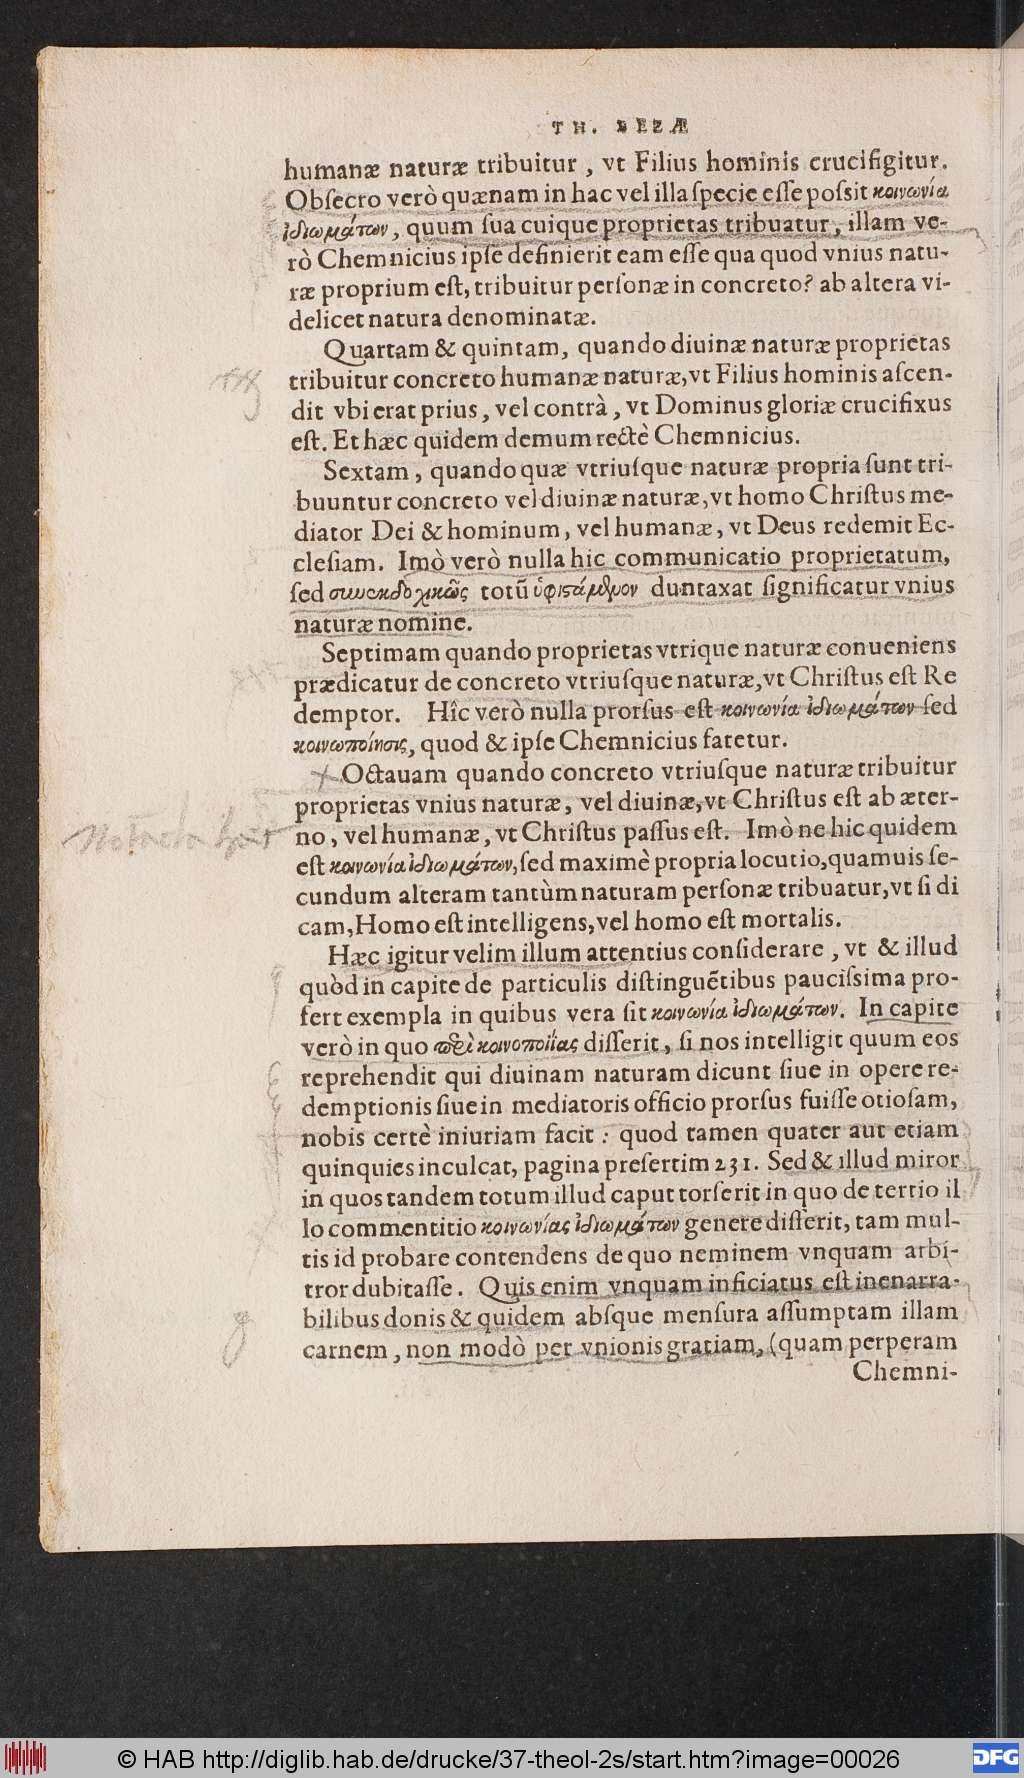 TH. BEZÆ
humanæ naturæ tribuitur, vt Filius hominis crucifigitur.
Obſecro verò quænam in hac vel illa ſpecie eſſe poſsit κοινωνία
ἰδιωμάτων, quum ſua cuique proprietas tribuatur, illam ve-
rò Chemnicius ipſe definierit eam eſſe qua quod vnius natu-
ræ proprium eſt, tribuitur perſonæ in concreto? ab altera vi-
delicet natura denominatæ.
Quartam & quintam, quando diuinæ naturæ proprietas
tribuitur concreto humanæ naturæ, vt Filius hominis aſcen-
dit vbi erat prius, vel contrà, vt Dominus gloriæ crucifixus
eſt. Et hæc quidem demum rectè Chemnicius.
Sextam, quando quæ vtriuſque naturæ propria ſunt tri-
buuntur concreto vel diuinæ naturæ, vt homo Chriſtus me-
diator Dei & hominum, vel humanæ, vt Deus redemit Ec-
cleſiam. Imò verò nulla hic communicatio proprietatum,
ſed συνεκδοχικῶς totũ ὑφιστάμενον duntaxat ſignificatur vnius
naturæ nomine.
Septimam quando proprietas vtrique naturæ conueniens
prædicatur de concreto vtriuſque naturæ, vt Chriſtus eſt Re
demptor. Hîc verò nulla prorſus eſt κοινωνία ἰδιωμάτων ſed
κοινωποίησις, quod & ipſe Chemnicius fatetur.
Octauam quando concreto vtriuſque naturæ tribuitur
proprietas vnius naturæ, vel diuinæ, vt Chriſtus eſt ab æter-
no, vel humanæ, vt Chriſtus paſſus eſt. Imò ne hic quidem
eſt κοινωνία ἰδιωμάτων, ſed maximè propria locutio, quamuis ſe-
cundum alteram tantùm naturam perſonæ tribuatur, vt ſi di
cam, Homo eſt intelligens, vel homo eſt mortalis.
Hæc igitur velim illum attentius conſiderare, vt & illud
quòd in capite de particulis diſtinguẽtibus pauciſsima pro-
fert exempla in quibus vera ſit κοινωνία ἰδιωμάτων. In capite
verò in quo περὶ κοινοποιΐας diſſerit, ſi nos intelligit quum eos
reprehendit qui diuinam naturam dicunt ſiue in opere re-
demptionis ſiue in mediatoris officio prorſus fuiſſe otioſam,
nobis certè iniuriam facit: quod tamen quater aut etiam
quinquies inculcat, pagina preſertim 231. Sed & illud miror
in quos tandem totum illud caput torſerit in quo de tertio il
lo commentitio κοινωνίας ἰδιωμάτων genere diſſerit, tam mul-
tis id probare contendens de quo neminem vnquam arbi-
tror dubitaſſe. Quis enim vnquam inficiatus eſt inenarra-
bilibus donis & quidem abſque menſura aſſumptam illam
carnem, non modò per vnionis gratiam, (quam perperam
Chemni-
© HAB http://diglib.hab.de/drucke/37-theol-2s/start.htm?image=00026
DFG